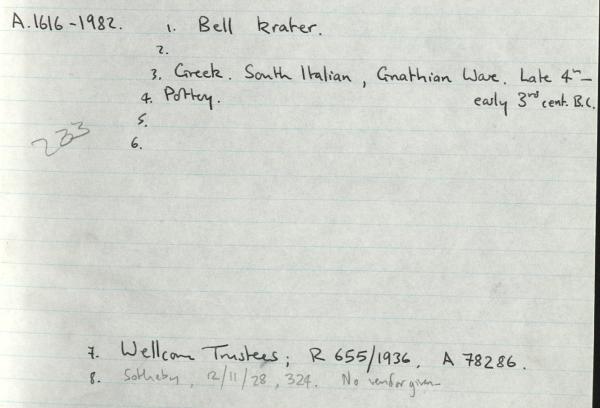 A.1616-1982. 1. Bell krater.
2.
3. Greek. South Italian, Gnathian Ware. Late 4th-
early 3rd cent. B.C.
4. Pottery.
5.
233
6.
7. Wellcome Trustees; R 655/1936, A 78286.
8. Sotheby, 12/11/28, 324. No vendor given